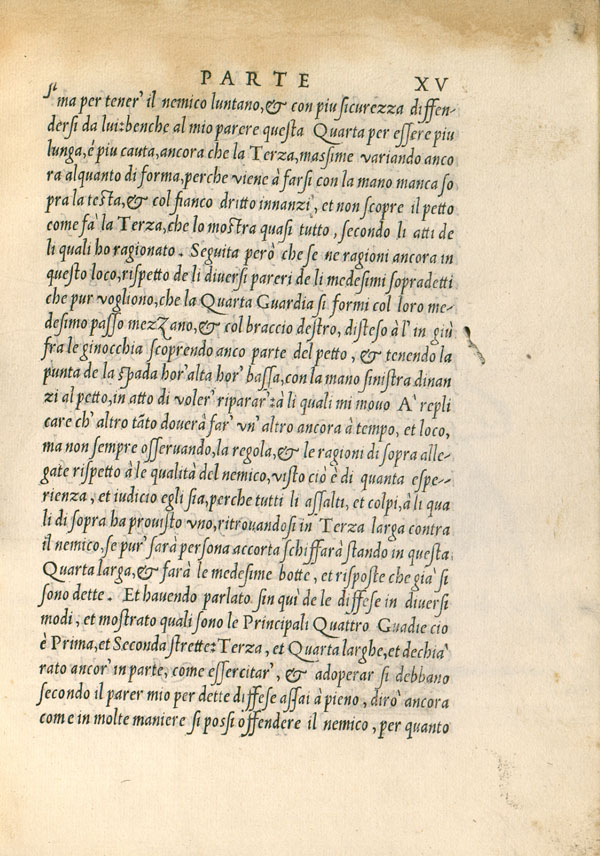 PARTE XV
ma per tener' il nemico luntano,& con piu sicurezza diffen-
dersi da lui:benche al mio parere questa Quarta per essere piu
lunga,é piu cauta,ancora che la Terza,massime variando anco
ra alquanto di forma,perche viene à farsi con la mano manca so
pra la testa,& col fianco dritto innanzi, et non scopre il petto
come fà la Terza,che lo mostra quasi tutto, secondo li atti de
li quali ho ragionato. Seguita però che se ne ragioni ancora in
questo loco,rispetto de li diversi pareri de li medesimi sopradetti
che pur vogliono,che la Quarta Guardia si formi col loro me-
desimo passo mezzano,& col braccio destro, disteso à l'in giù
fra le ginocchia scoprendo anco parte del petto, & tenendo la
punta de la spada hor'alta hor' bassa,con la mano sinistra dinan
zi al petto,in atto di voler' riparar':à li quali mi movo A' repli
care ch'altro tãto doverà far' vn' altro ancora à tempo, et loco,
ma non sempre osservando,la regola,& le ragioni di sopra alle-
gate rispetto à le qualità del nemico,visto ciò è di quanta espe-
rienza, et iudicio egli sia,perche tutti li assalti, et colpi,à li qua
li di sopra ha provisto vno,ritrovandosi in Terza larga contra
il nemico,se pur' sarà persona accorta schiffarà stando in questa
Quarta larga,& farà le medesime botte, et risposte che già si
sono dette. Et havendo parlato sin quì de le diffese in diversi
modi, et mostrato quali sono le Principali Quattro Guadie cio
è Prima,et Seconda strette:Terza, et Quarta larghe,et dechia'
rato ancor' in parte, come essercitar', & adoperar si debbano
secondo il parer mio per dette diffese assai à pieno, dirò ancora
come in molte maniere si possi offendere il nemico, per quanto